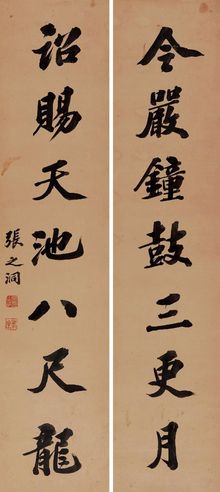 令嚴鐘鼓三更月
詔賜天池八尺龍
張之洞